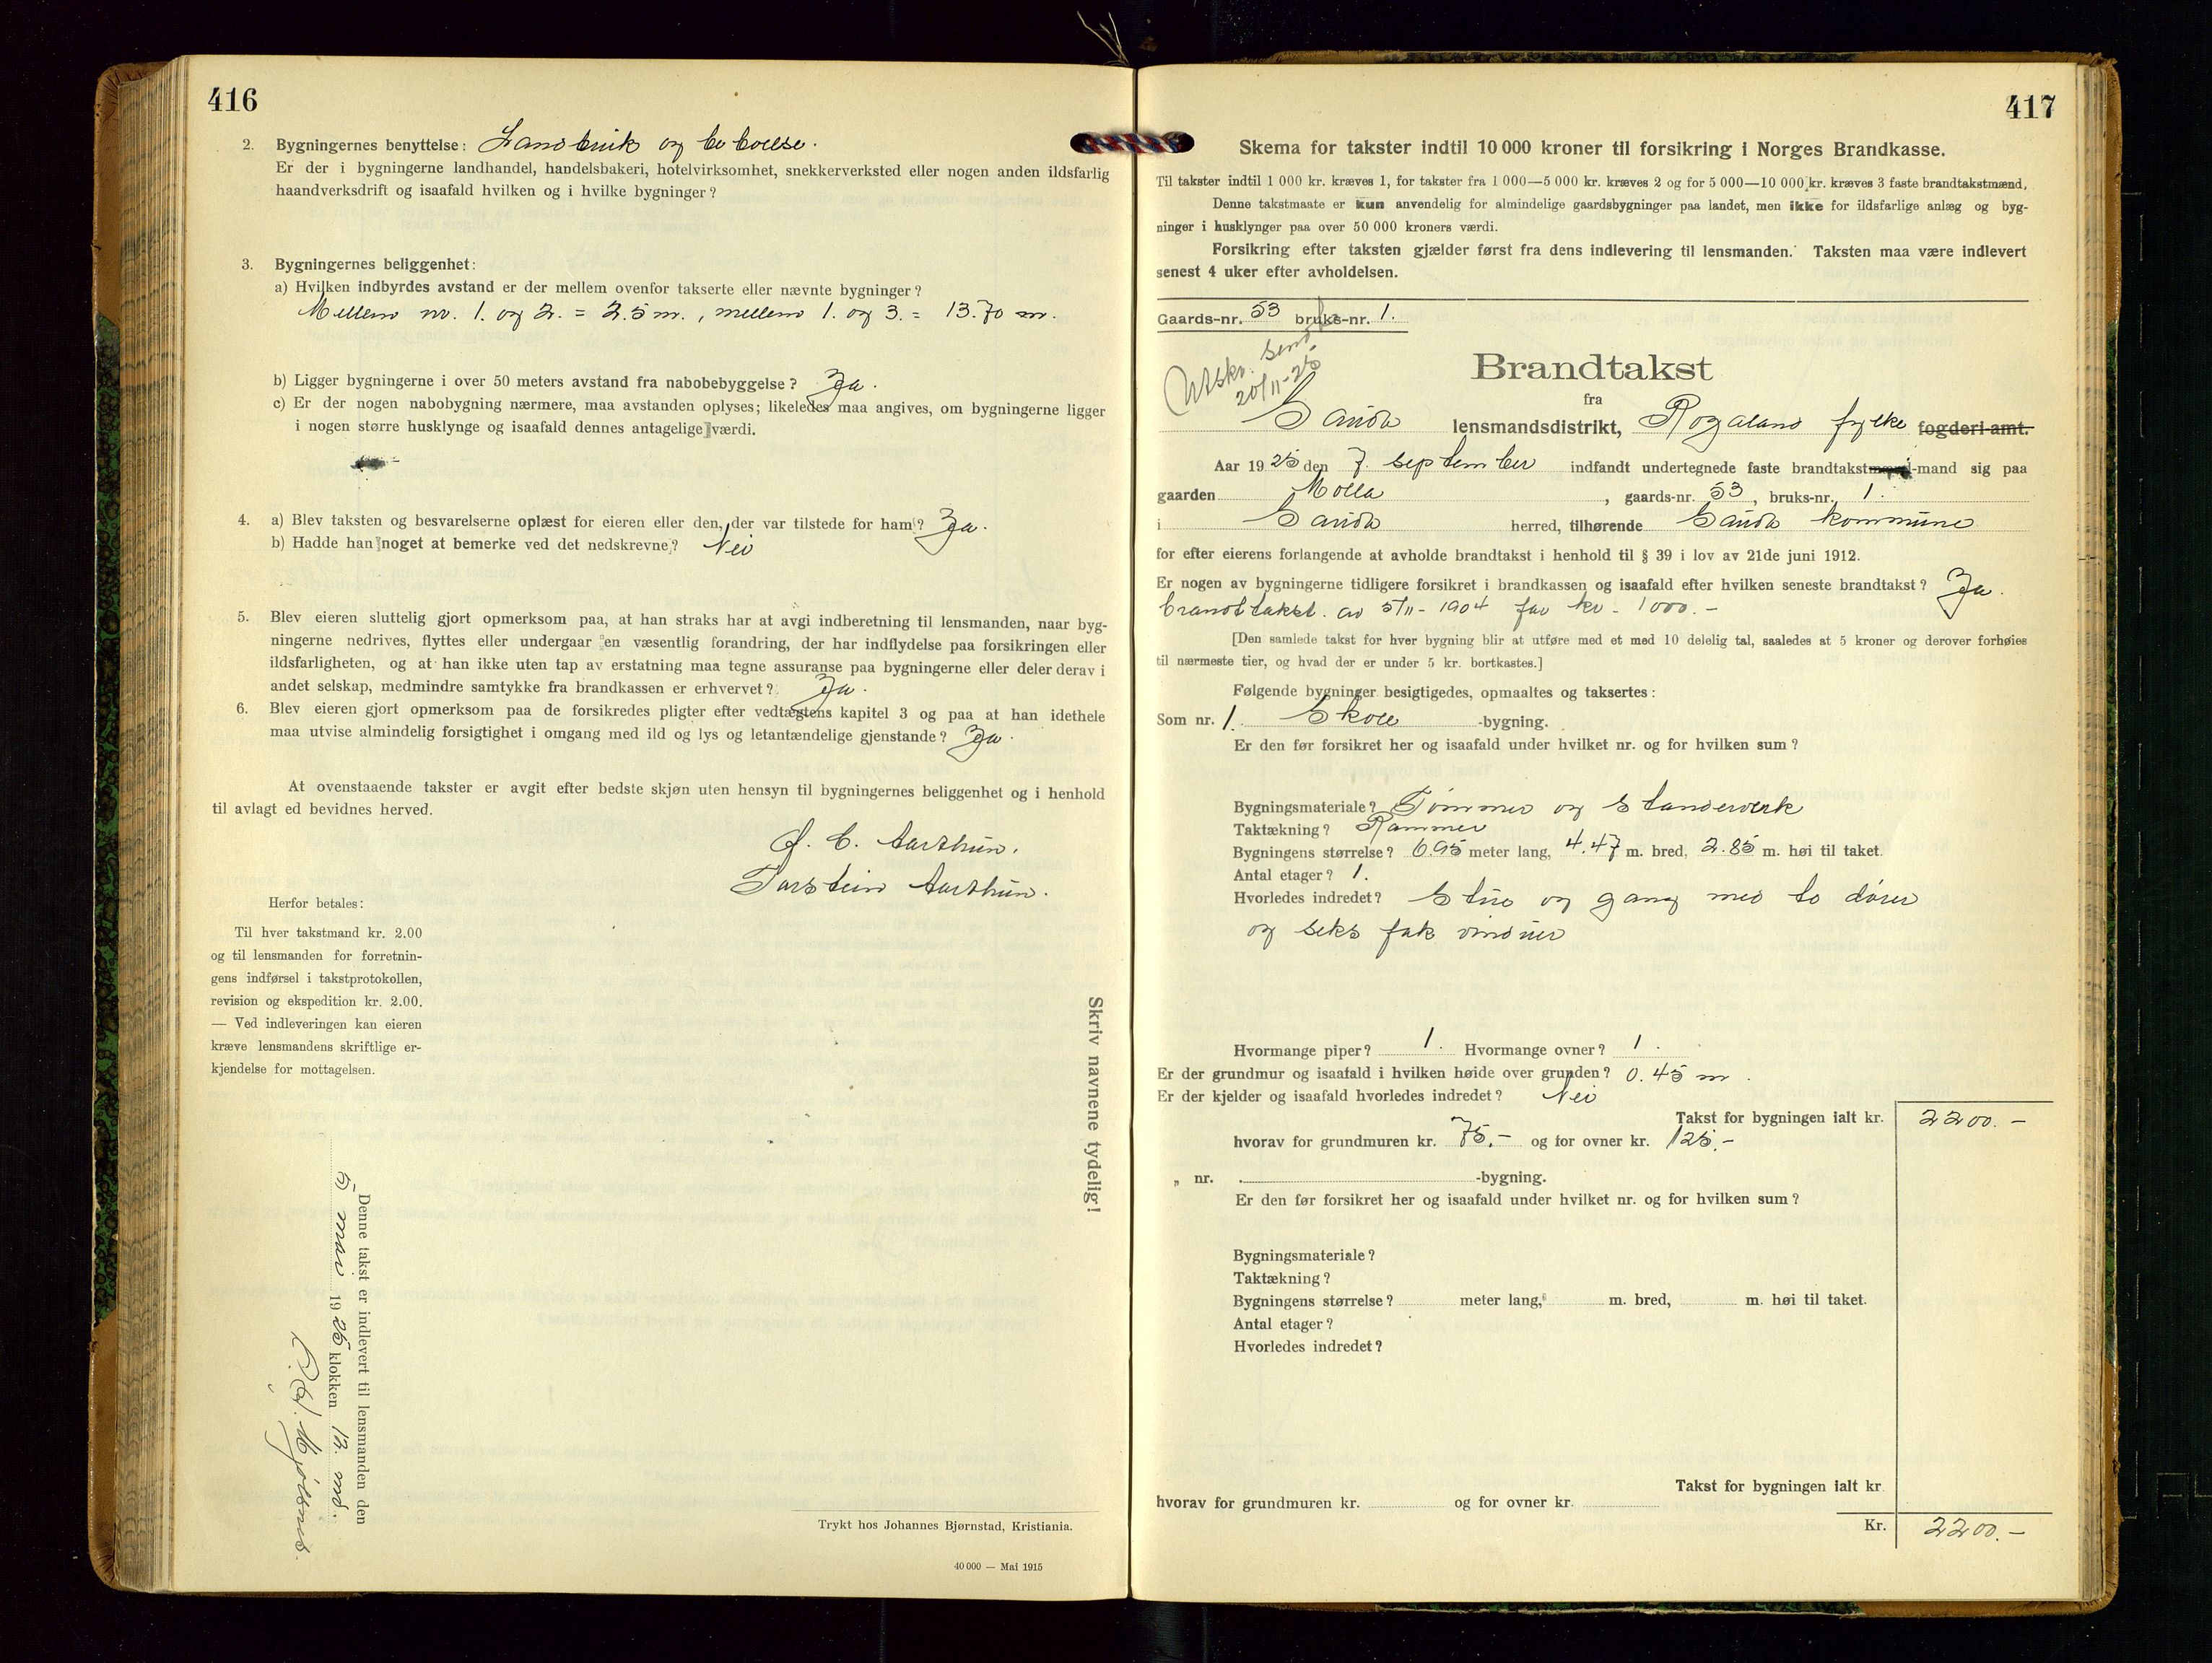 416
2. Bygningernes benyttelse: Landbruk og beboelse.
Er der i bygningerne landhandel, handelsbakeri, hotelvirksomhet, snekkerverksted eller nogen anden ildsfarlig
haandverksdrift og isaafald hvilken og i hvilke bygninger?
3. Bygningernes beliggenhet:
a) Hvilken indbyrdes avstand er der mellem ovenfor takserte eller nævnte bygninger?
Mellem nr. 1. og 2. = 2.5 m., mellem 1. og 3. = 13.70 m.
b) Ligger bygningerne i over 50 meters avstand fra nabobebyggelse? Ja.
c) Er der nogen nabobygning nærmere, maa avstanden oplyses; likeledes maa angives, om bygningerne ligger
i nogen større husklynge og isaafald dennes antagelige værdi.
4. a) Blev taksten og besvarelserne oplæst for eieren eller den, der var tilstede for ham? Ja.
b) Hadde han noget at bemerke ved det nedskrevne? Nei
5. Blev eieren sluttelig gjort opmerksom paa, at han straks har at avgi indberetning til lensmanden, naar byg-
ningerne nedrives, flyttes eller undergaar en væsentlig forandring, der har indflydelse paa forsikringen eller
ildsfarligheten, og at han ikke uten tap av erstatning maa tegne assuranse paa bygningerne eller deler derav i
andet selskap, medmindre samtykke fra brandkassen er erhvervet? Ja.
6. Blev eieren gjort opmerksom paa de forsikredes pligter efter vedtægtens kapitel 3 og paa at han idethele
maa utvise almindelig forsigtighet i omgang med ild og lys og letantændelige gjenstande? Ja.
At ovenstaaende takster er avgit efter bedste skjøn uten hensyn til bygningernes beliggenhet og i henhold
til avlagt ed bevidnes herved.
O. C. Aarthun.
Torstein Aarthun.
Herfor betales:
Til hver takstmand kr. 2.00
og til lensmanden for forretnin-
gens indførsel i takstprotokollen,
revision og ekspedition kr. 2.00.
— Ved indleveringen kan eieren
kræve lensmandens skriftlige er-
kjendelse for mottagelsen.
Skriv navnene tydelig!
Denne takst er indlevert til lensmanden den
5 mai 1925 klokken 12. md.
Mjølsnes.
Trykt hos Johannes Bjørnstad, Kristiania.
40 000 — Mai 1915
417
Skema for takster indtil 10 000 kroner til forsikring i Norges Brandkasse.
Til takster indtil 1 000 kr. kræves 1, for takster fra 1 000—5 000 kr. kræves 2 og for 5 000—10 000 kr. kræves 3 faste brandtakstmænd,
Denne takstmaate er kun anvendelig for almindelige gaardsbygninger paa landet, men ikke for ildsfarlige anlæg og byg-
ninger i husklynger paa over 50 000 kroners værdi.
Forsikring efter taksten gjælder først fra dens indlevering til lensmanden. Taksten maa være indlevert
senest 4 uker efter avholdelsen.
Gaards-nr. 53 bruks-nr. 1.
Utskr. sendt
20/11-25
Brandtakst
fra
Sauda lensmandsdistrikt, Rogaland fylke fogderi amt.
Aar 1925 den 7. september indfandt undertegnede faste brandtakstmænd-mand sig paa
gaarden Molla, gaards-nr. 53, bruks-nr. 1.
i Sauda herred, tilhørende Sauda kommune
for efter eierens forlangende at avholde brandtakst i henhold til § 39 i lov av 21de juni 1912.
Er nogen av bygningerne tidligere forsikret i brandkassen og isaafald efter hvilken seneste brandtakst? Ja.
brandtakst. av 5/11-1904 for kr. 1000.-
[Den samlede takst for hver bygning blir at utføre med et med 10 delelig tal, saaledes at 5 kroner og derover forhøies
til nærmeste tier, og hvad der er under 5 kr. bortkastes.]
Følgende bygninger besigtigedes, opmaaltes og taksertes:
Som nr. 1. Skole-bygning.
Er den før forsikret her og isaafald under hvilket nr. og for hvilken sum?
Bygningsmateriale? Tømmer og standerverk
Taktækning? Rammer
Bygningens størrelse? 6.95 meter lang, 4.47 m. bred, 2.85 m. høi til taket.
Antal etager? 1.
Hvorledes indredet? Stue og gang med to dører
og seks fak vinduer
Hvormange piper? 1. Hvormange ovner? 1.
Er der grundmur og isaafald i hvilken høide over grunden? 0.45 m.
Er der kjelder og isaafald hvorledes indredet? Nei
Takst for bygningen ialt kr. 2200.-
hvorav for grundmuren kr. 75.- og for ovner kr. 125.-
„ nr. -bygning.
Er den før forsikret her og isaafald under hvilket nr. og for hvilken sum?
Bygningsmateriale?
Taktækning?
Bygningens størrelse? meter lang, m. bred, m. høi til taket.
Antal etager?
Hvorledes indredet?
Takst for bygningen ialt kr
hvorav for grundmuren kr. og for ovner kr.
Kr. 2200.-